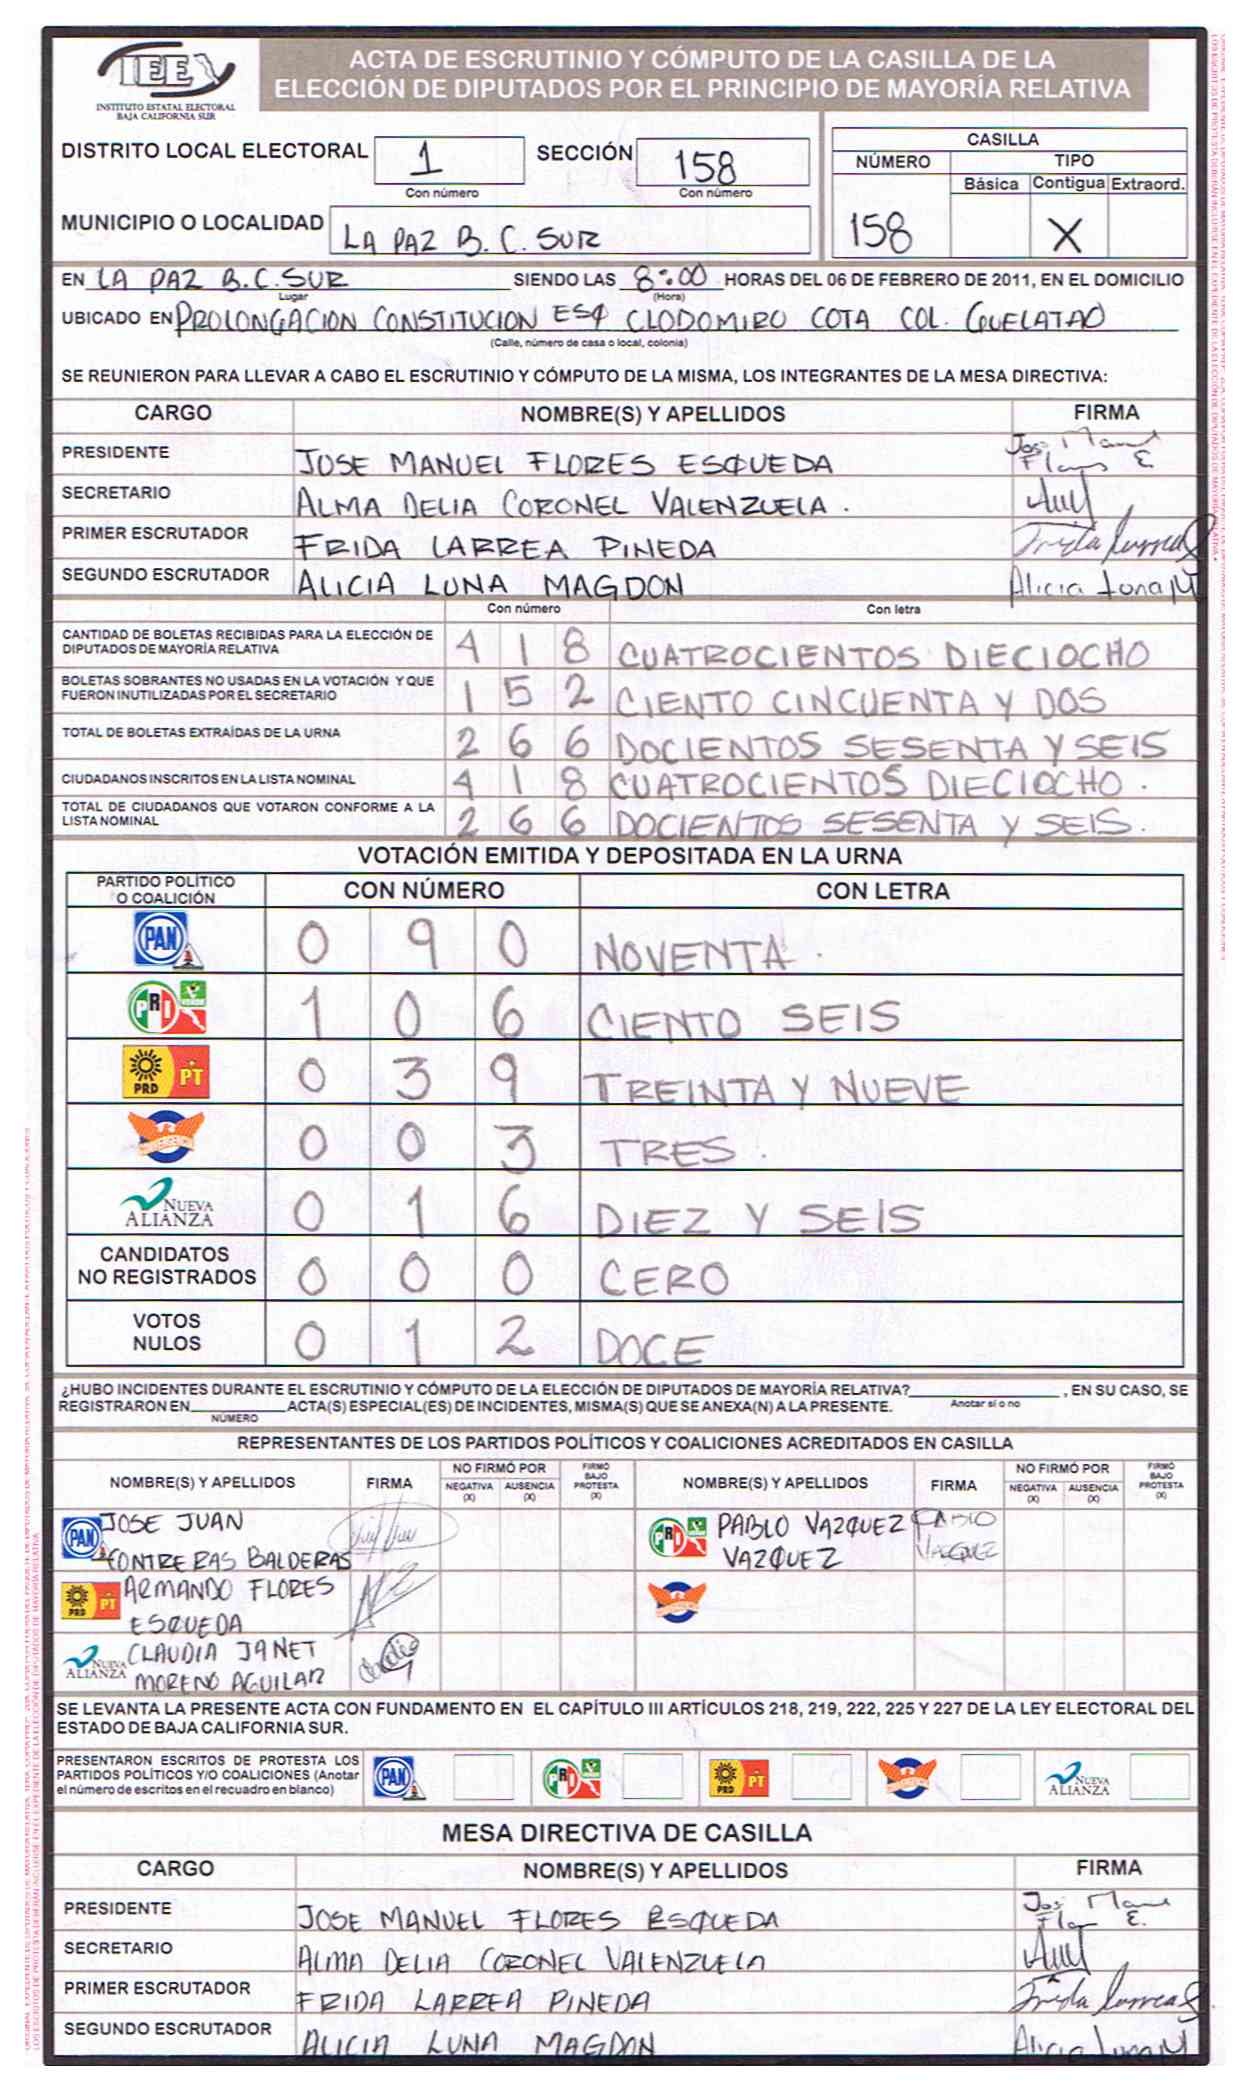 IEE
INSTITUTO ESTATAL ELECTORAL
BAJA CALIFORNIA SUR
ACTA DE ESCRUTINIO Y CÓMPUTO DE LA CASILLA DE LA
ELECCIÓN DE DIPUTADOS POR EL PRINCIPIO DE MAYORÍA RELATIVA
DISTRITO LOCAL ELECTORAL 1 SECCIÓN 158
Con número Con número
MUNICIPIO O LOCALIDAD LA PAZ B.C. SUR
CASILLA
NÚMERO TIPO
Básica Contigua Extraord.
158 X
EN LA PAZ B.C. SUR SIENDO LAS 8:00 HORAS DEL 06 DE FEBRERO DE 2011, EN EL DOMICILIO
Lugar (Hora)
UBICADO EN PROLONGACION CONSTITUCION ESQ CLODOMIRO COTA COL. GUELATAO
(Calle, número de casa o local, colonia)
SE REUNIERON PARA LLEVAR A CABO EL ESCRUTINIO Y CÓMPUTO DE LA MISMA, LOS INTEGRANTES DE LA MESA DIRECTIVA:
CARGO NOMBRE(S) Y APELLIDOS FIRMA
PRESIDENTE JOSE MANUEL FLORES ESQUEDA
SECRETARIO ALMA DELIA CORONEL VALENZUELA.
PRIMER ESCRUTADOR FRIDA LARREA PINEDA
SEGUNDO ESCRUTADOR ALICIA LUNA MAGDON Alicia Luna M
Con número Con letra
CANTIDAD DE BOLETAS RECIBIDAS PARA LA ELECCIÓN DE
DIPUTADOS DE MAYORÍA RELATIVA 4 1 8 CUATROCIENTOS DIECIOCHO
BOLETAS SOBRANTES NO USADAS EN LA VOTACIÓN Y QUE
FUERON INUTILIZADAS POR EL SECRETARIO 1 5 2 CIENTO CINCUENTA Y DOS
TOTAL DE BOLETAS EXTRAÍDAS DE LA URNA 2 6 6 DOCIENTOS SESENTA Y SEIS
CIUDADANOS INSCRITOS EN LA LISTA NOMINAL 4 1 8 CUATROCIENTOS DIECIOCHO.
TOTAL DE CIUDADANOS QUE VOTARON CONFORME A LA
LISTA NOMINAL 2 6 6 DOCIENTOS SESENTA Y SEIS.
VOTACIÓN EMITIDA Y DEPOSITADA EN LA URNA
PARTIDO POLÍTICO
O COALICIÓN CON NÚMERO CON LETRA
PAN 0 9 0 NOVENTA.
PRI VERDE 1 0 6 CIENTO SEIS
PRD PT 0 3 9 TREINTA Y NUEVE
CONVERGENCIA 0 0 3 TRES.
NUEVA ALIANZA 0 1 6 DIEZ Y SEIS
CANDIDATOS
NO REGISTRADOS 0 0 0 CERO
VOTOS
NULOS 0 1 2 DOCE
¿HUBO INCIDENTES DURANTE EL ESCRUTINIO Y CÓMPUTO DE LA ELECCIÓN DE DIPUTADOS DE MAYORÍA RELATIVA? , EN SU CASO, SE
Anotar sí o no
REGISTRARON EN ACTA(S) ESPECIAL(ES) DE INCIDENTES, MISMA(S) QUE SE ANEXA(N) A LA PRESENTE.
NÚMERO
REPRESENTANTES DE LOS PARTIDOS POLÍTICOS Y COALICIONES ACREDITADOS EN CASILLA
NOMBRE(S) Y APELLIDOS FIRMA NO FIRMÓ POR NEGATIVA (X) AUSENCIA (X) FIRMÓ BAJO PROTESTA (X) NOMBRE(S) Y APELLIDOS FIRMA NO FIRMÓ POR NEGATIVA (X) AUSENCIA (X) FIRMÓ BAJO PROTESTA (X)
PAN JOSE JUAN
CONTRERAS BALDERAS
PRI VERDE PABLO VAZQUEZ
VAZQUEZ
PABLO
VAZQUEZ
PRD PT ARMANDO FLORES
ESQUEDA
NUEVA ALIANZA CLAUDIA JANET
MORENO AGUILAR
SE LEVANTA LA PRESENTE ACTA CON FUNDAMENTO EN EL CAPÍTULO III ARTÍCULOS 218, 219, 222, 225 Y 227 DE LA LEY ELECTORAL DEL
ESTADO DE BAJA CALIFORNIA SUR.
PRESENTARON ESCRITOS DE PROTESTA LOS
PARTIDOS POLÍTICOS Y/O COALICIONES (Anotar
el número de escritos en el recuadro en blanco)
PAN PRI VERDE PRD PT NUEVA ALIANZA
MESA DIRECTIVA DE CASILLA
CARGO NOMBRE(S) Y APELLIDOS FIRMA
PRESIDENTE JOSE MANUEL FLORES ESQUEDA
SECRETARIO ALMA DELIA CORONEL VALENZUELA
PRIMER ESCRUTADOR FRIDA LARREA PINEDA
SEGUNDO ESCRUTADOR ALICIA LUNA MAGDON Alicia Luna M